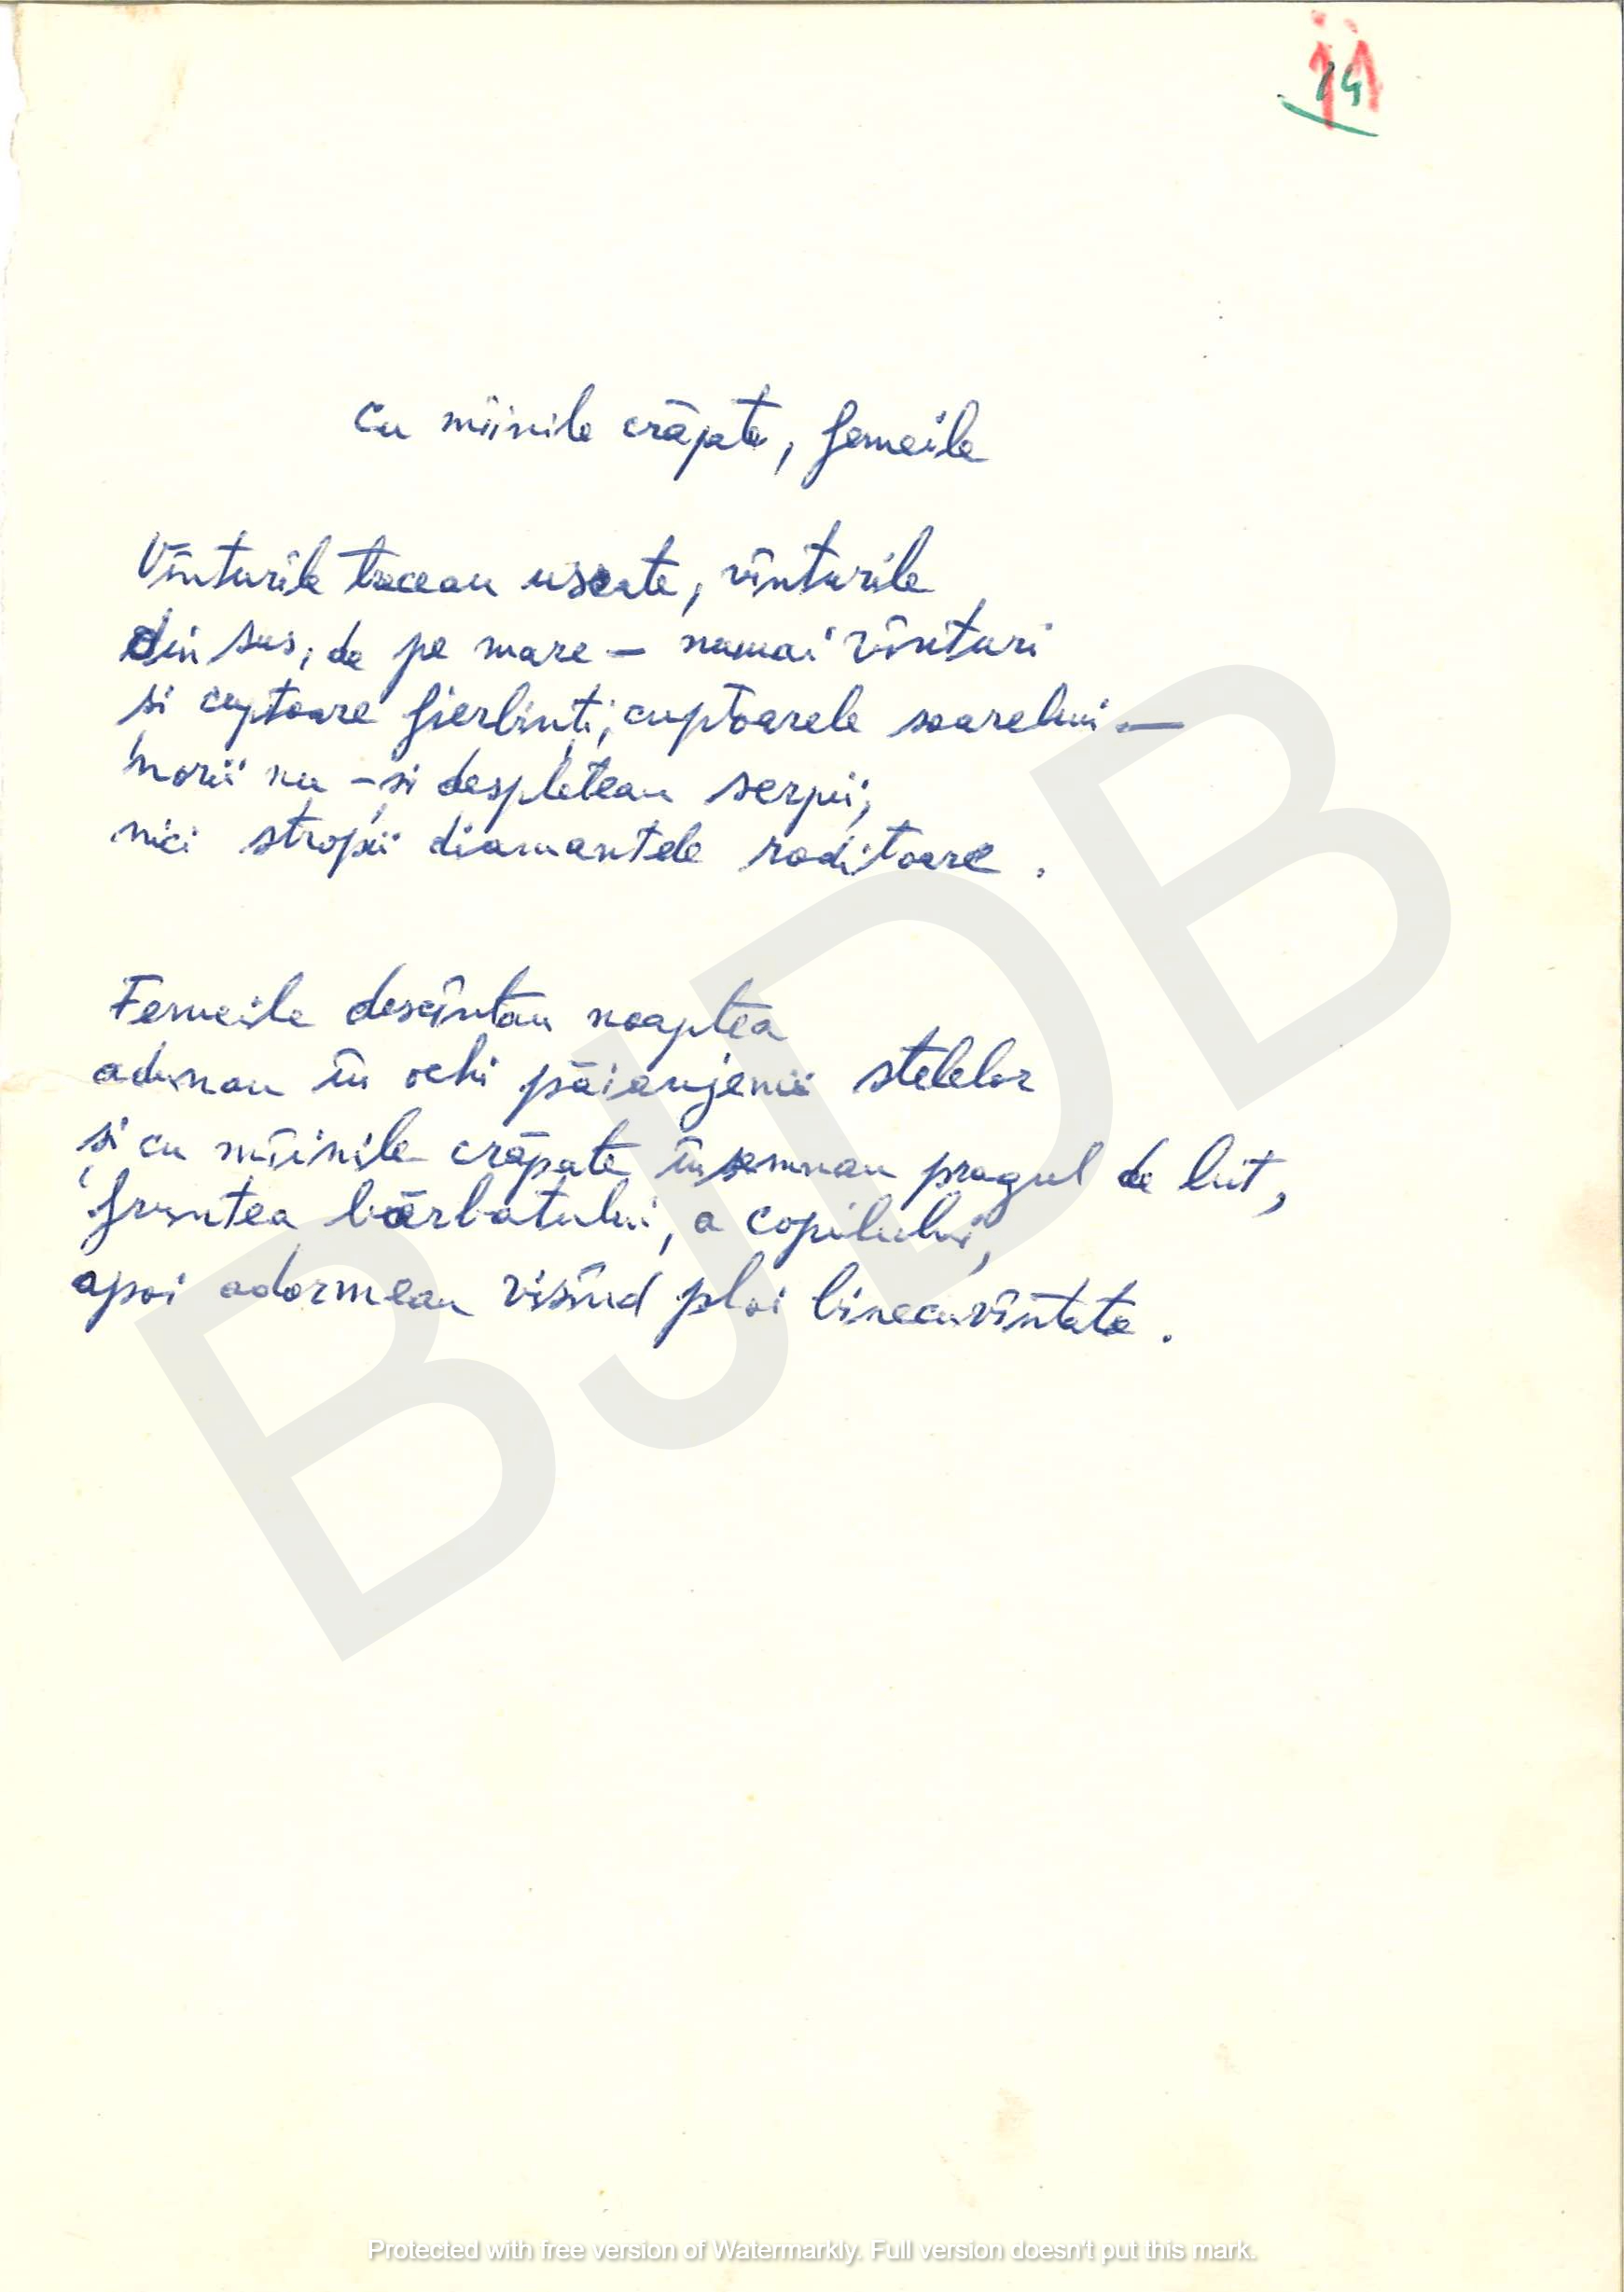 14
Cu mîinile crăpate, femeile
Vînturile treceau uscate, vînturile
din sus, de pe mare — numai vînturi
și cuptoare fierbinți, cuptoarele soarelui —
norii nu-și despleteau șerpii,
nici stropii diamantele roditoare.
Femeile descîntau noaptea
adunau în ochi păianjenii stelelor
și cu mîinile crăpate însemnau pragul de lut,
fruntea bărbatului, a copilului,
apoi adormeau visînd ploi binecuvîntate.
BJDB
Protected with free version of Watermarkly. Full version doesn't put this mark.